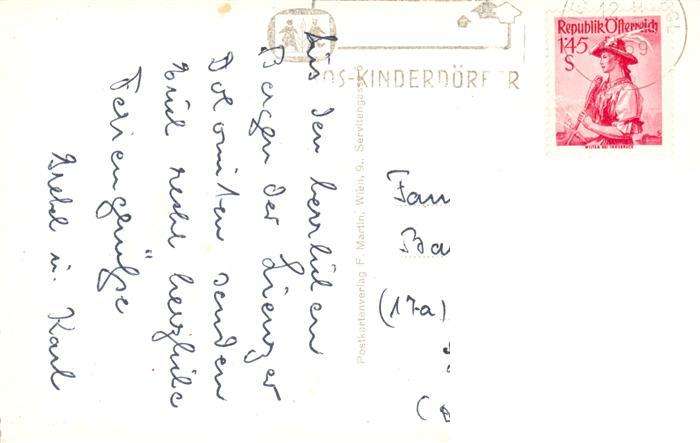 Aus den herrlichen
Bergen der Lienzer
Dolomiten senden
Euch recht herzliche
Feriengrüße
Gretel u. Karl
Postkartenverlag F. Martin, Wien, 9., Servitengasse
OS-KINDERDÖRFER
Republik Österreich
145
S
12
59
Fam
Ba
(17a)
(